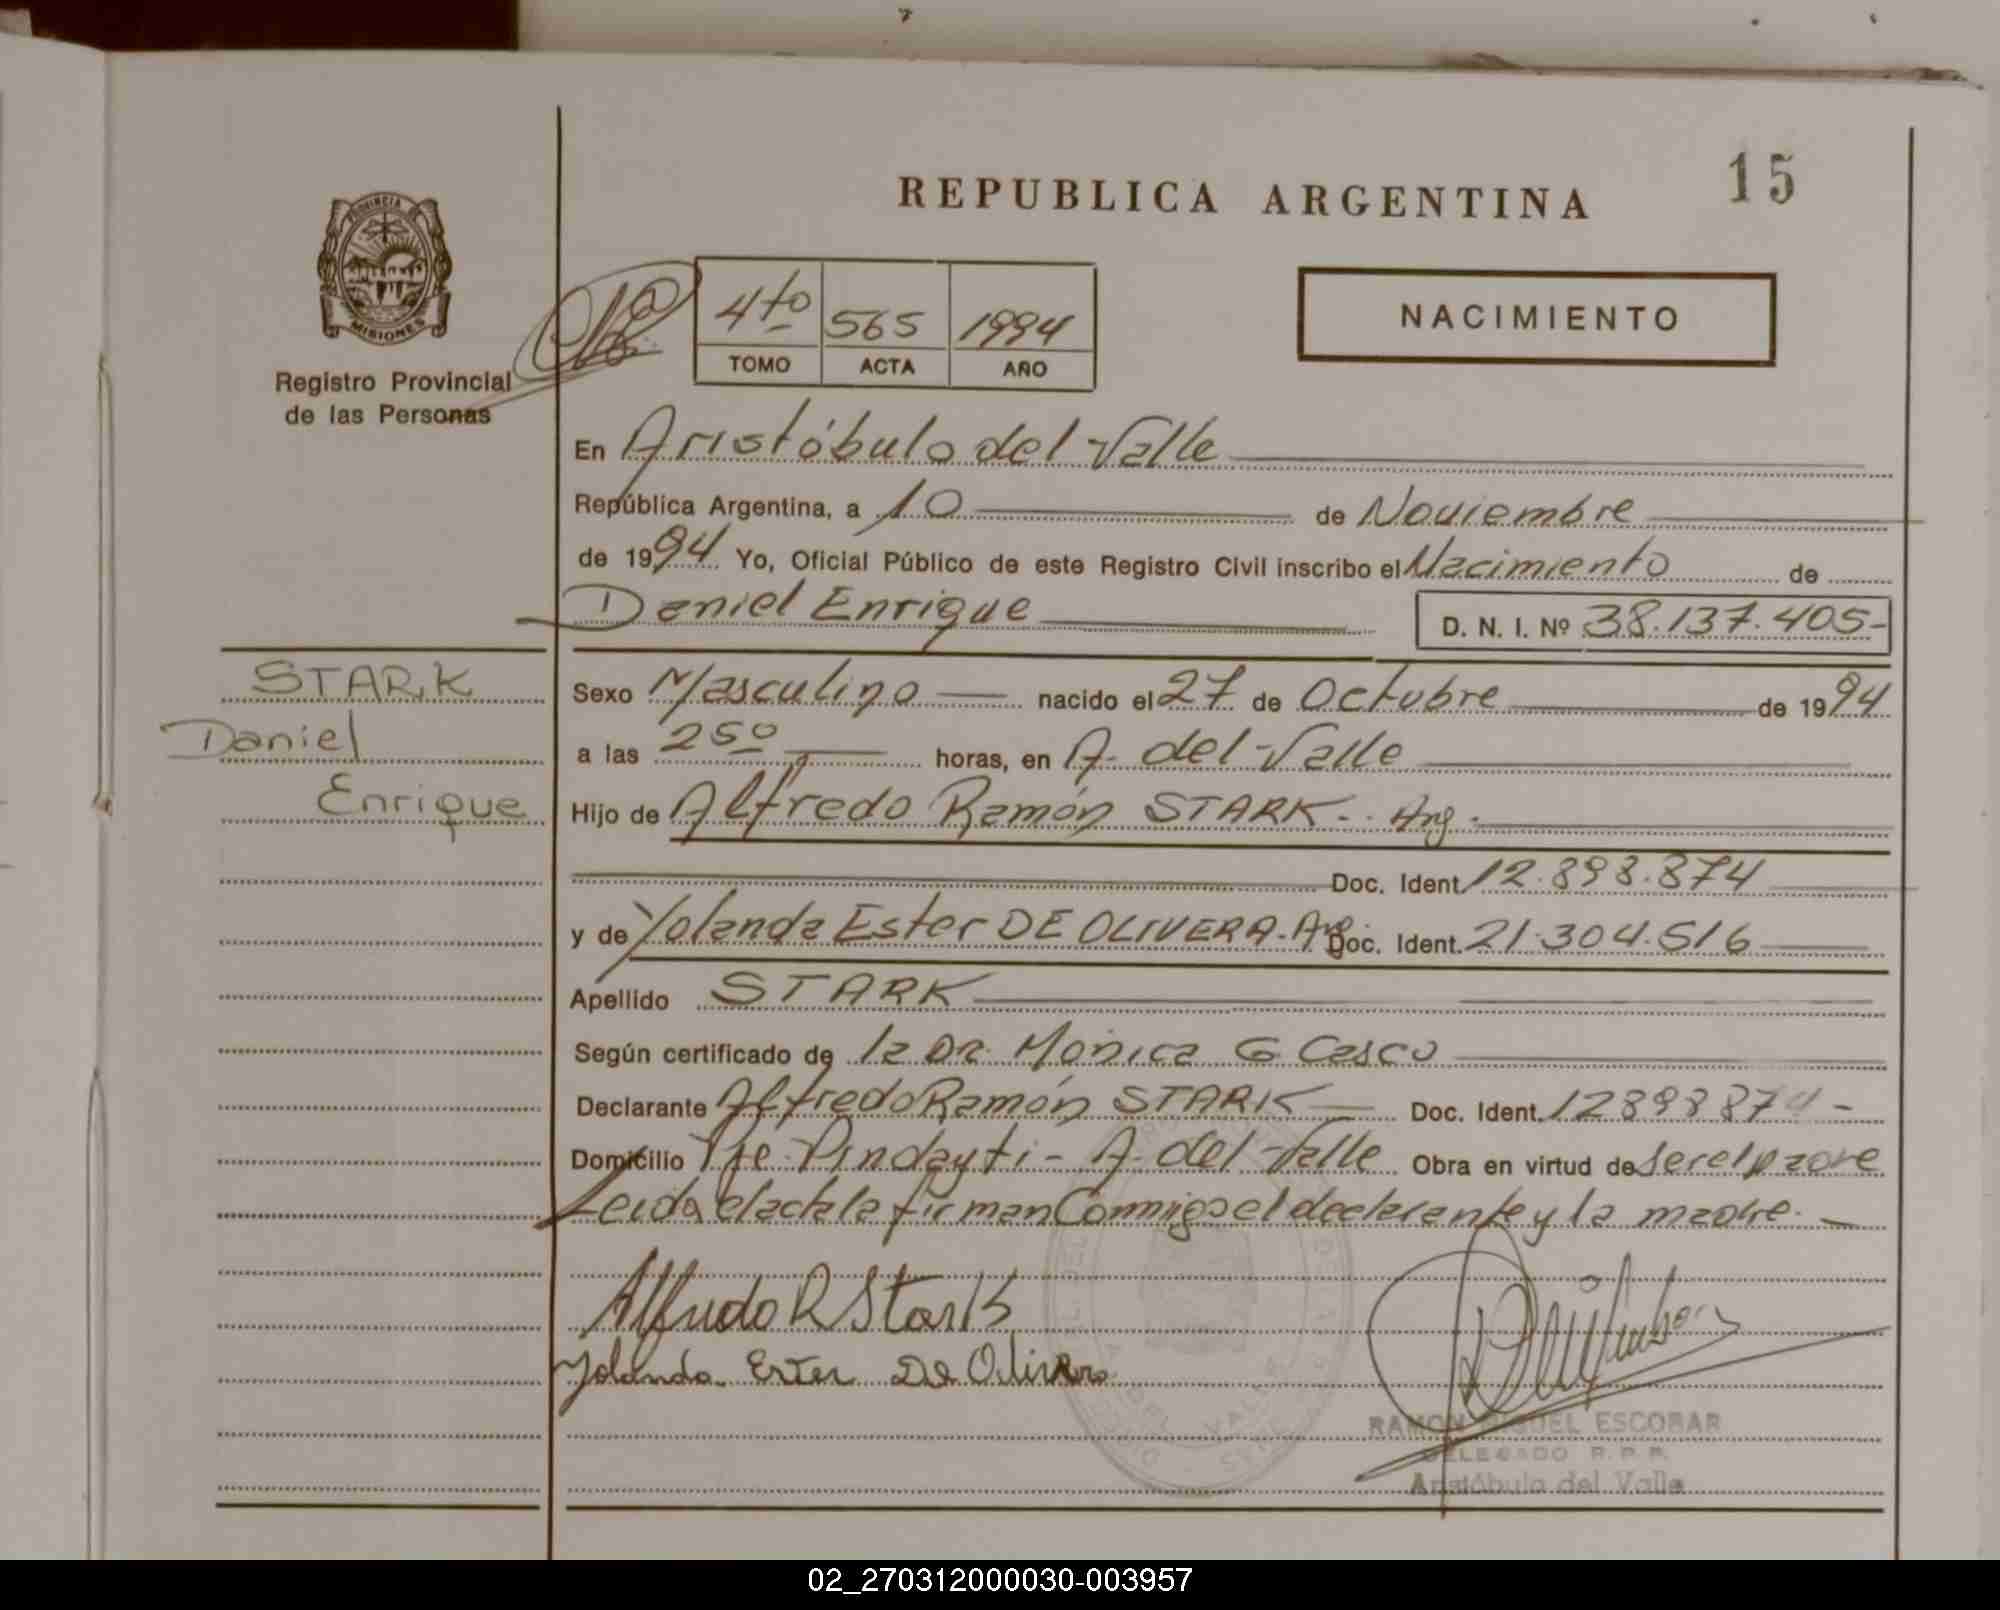 REPUBLICA ARGENTINA
15
PROVINCIA DE
MISIONES
Registro Provincial
de las Personas
4to 565 1994
TOMO ACTA AÑO
NACIMIENTO
En Aristóbulo del Valle
República Argentina, a 10 de Noviembre
de 1994 Yo, Oficial Público de este Registro Civil inscribo el Nacimiento de
Daniel Enrique D. N. I. Nº 38.137.405-
STARK
Daniel
Enrique
Sexo Masculino nacido el 27 de Octubre de 1994
a las 250 horas, en A. del Valle
Hijo de Alfredo Ramón STARK - Arg.
Doc. Ident. 12.898.874
y de Yolanda Ester DE OLIVERA - Arg. Doc. Ident. 21.304.516
Apellido STARK
Según certificado de la Dra. Mónica G Casco
Declarante Alfredo Ramón STARK Doc. Ident. 12898874-
Domicilio Pje. Pindayti - A. del Valle Obra en virtud de ser el padre
Leida el acta la firman Conmigo el declarante y la madre.
Alfredo R Stark
Yolanda Ester De Olivera
RAMON MIGUEL ESCOBAR
DELEGADO R.P.P.
Aristóbulo del Valle
02_270312000030-003957